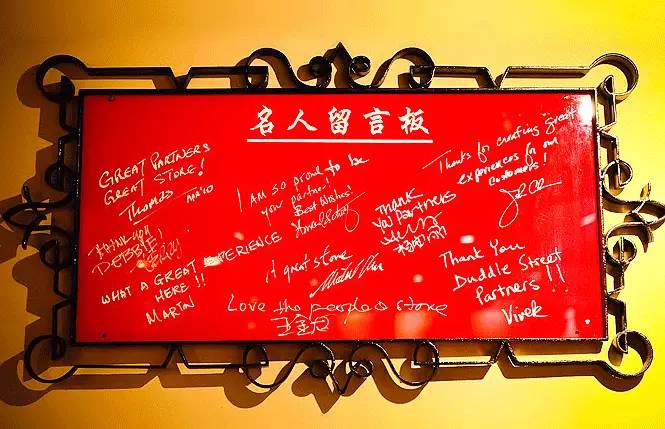 名人留言板
GREAT PARTNERS
GREAT STORE!
Thomas
MAR'10
THANK YOU
DEBBIE!
WHAT A GREAT EXPERIENCE
HERE !!
MARTIN
I AM SO proud to be
your partner!
Best Wishes!
it great store
Love the people & store
THANK
YOU PARTNERS
Thanks for creating great
experiences for our
customers!
Thank You
Duddle Street
Partners !!
Vivek